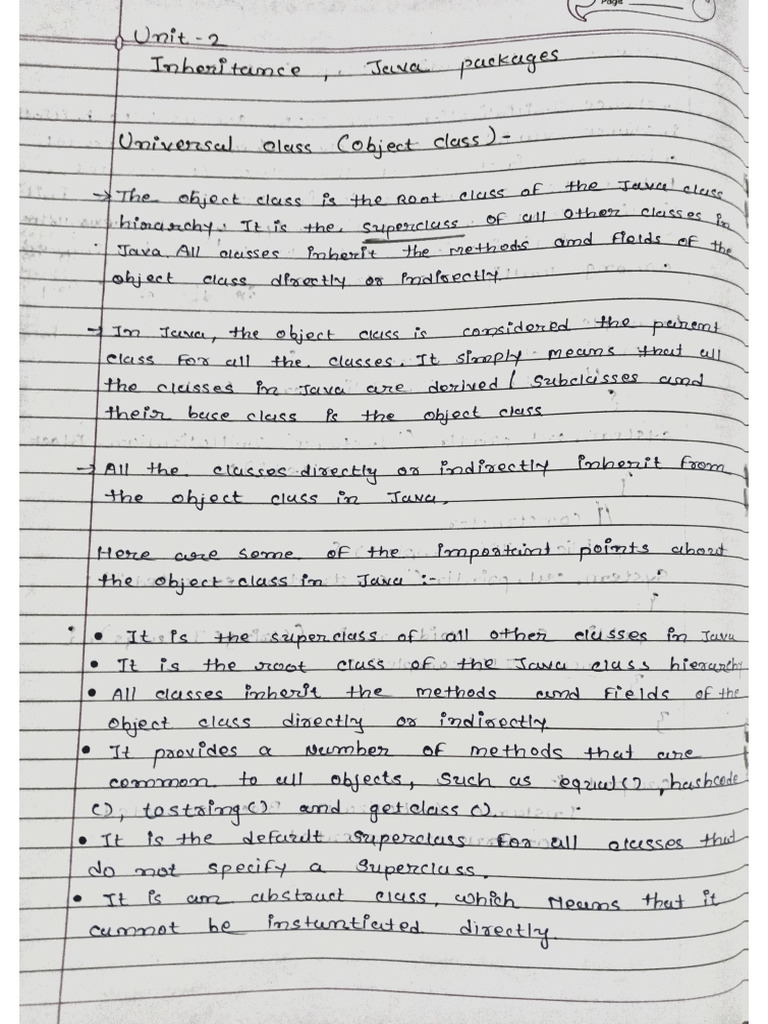 Page
Unit-2
Inheritance, Java packages
Universal class (Object class) -
→ The object class is the Root class of the Java class
hirarchy. It is the superclass of all other classes in
Java. All classes inherit the methods and fields of the
object class directly or indirectly.
→ In Java, the object class is considered the parent
class for all the classes. It simply means that all
the classes in Java are derived/subclasses and
their base class is the object class
→ All the classes directly or indirectly inherit from
the object class in Java.
Here are some of the important points about
the object class in Java :-
• It is the superclass of all other classes in Java
• It is the root class of the Java class hierarchy
• All classes inherit the methods and fields of the
object class directly or indirectly
• It provides a number of methods that are
common to all objects, such as equal(), hashcode
(), tostring() and getclass().
• It is the default superclass for all classes that
do not specify a superclass.
• It is an abstract class, which means that it
cannot be instantiated directly.